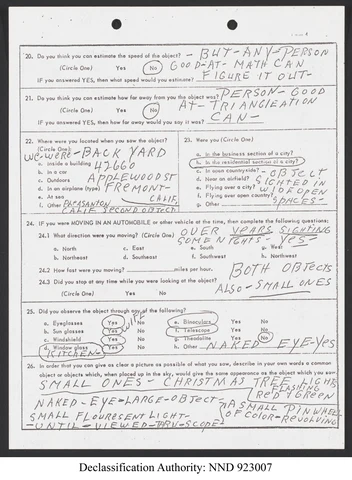 20. Do you think you can estimate the speed of the object? - BUT-ANY-PERSON
(Circle One) Yes No GOOD-AT-MATH CAN
IF you answered YES, then what speed would you estimate? FIGURE IT OUT-
21. Do you think you can estimate how far away from you the object was? PERSON-GOOD
(Circle One) Yes No AT-TRIANGLEATION
IF you answered YES, then how far away would you say it was? CAN-
22. Where were you located when you saw the object?
(Circle One):
WE-WERE-BACK YARD
a. Inside a building 42660
b. In a car
c. Outdoors APPLEWOOD ST
d. In an airplane (type) FREMONT-
e. At sea CALIF.
f. Other PLEASANTON
CALIF SECOND OBJECT
23. Were you (Circle One)
a. In the business section of a city?
b. In the residential section of a city?
c. In open countryside? - OBJECT
d. Near an airfield? SIGHTED IN
e. Flying over a city? WIDE OPEN
f. Flying over open country? SPACES-
g. Other
24. IF you were MOVING IN AN AUTOMOBILE or other vehicle at the time, then complete the following questions:
24.1 What direction were you moving? (Circle One) OVER YEARS SIGHTING
SOME NIGHTS - YES-
a. North c. East e. South g. West
b. Northeast d. Southeast f. Southwest h. Northwest
24.2 How fast were you moving? miles per hour. BOTH OBJECTS
24.3 Did you stop at any time while you were looking at the object? ALSO-SMALL ONES
(Circle One) Yes No
25. Did you observe the object through any of the following?
a. Eyeglasses Yes No e. Binoculars Yes No
b. Sun glasses Yes No f. Telescope Yes No
c. Windshield Yes No g. Theodolite Yes No
d. Window glass Yes No h. Other NAKED EYE-YES
KITCHEN
26. In order that you can give as clear a picture as possible of what you saw, describe in your own words a common
object or objects which, when placed up in the sky, would give the same appearance as the object which you saw.
SMALL ONES - CHRISTMAS TREE LIGHTS
FLASHING
RED Y GREEN
NAKED-EYE-LARGE-OBJECT-
SMALL FLOURESENT LIGHT-
A SMALL PINWHEEL
OF COLOR-REVOLVING
-UNTIL-VIEWED-THRU-SCOPE
Declassification Authority: NND 923007